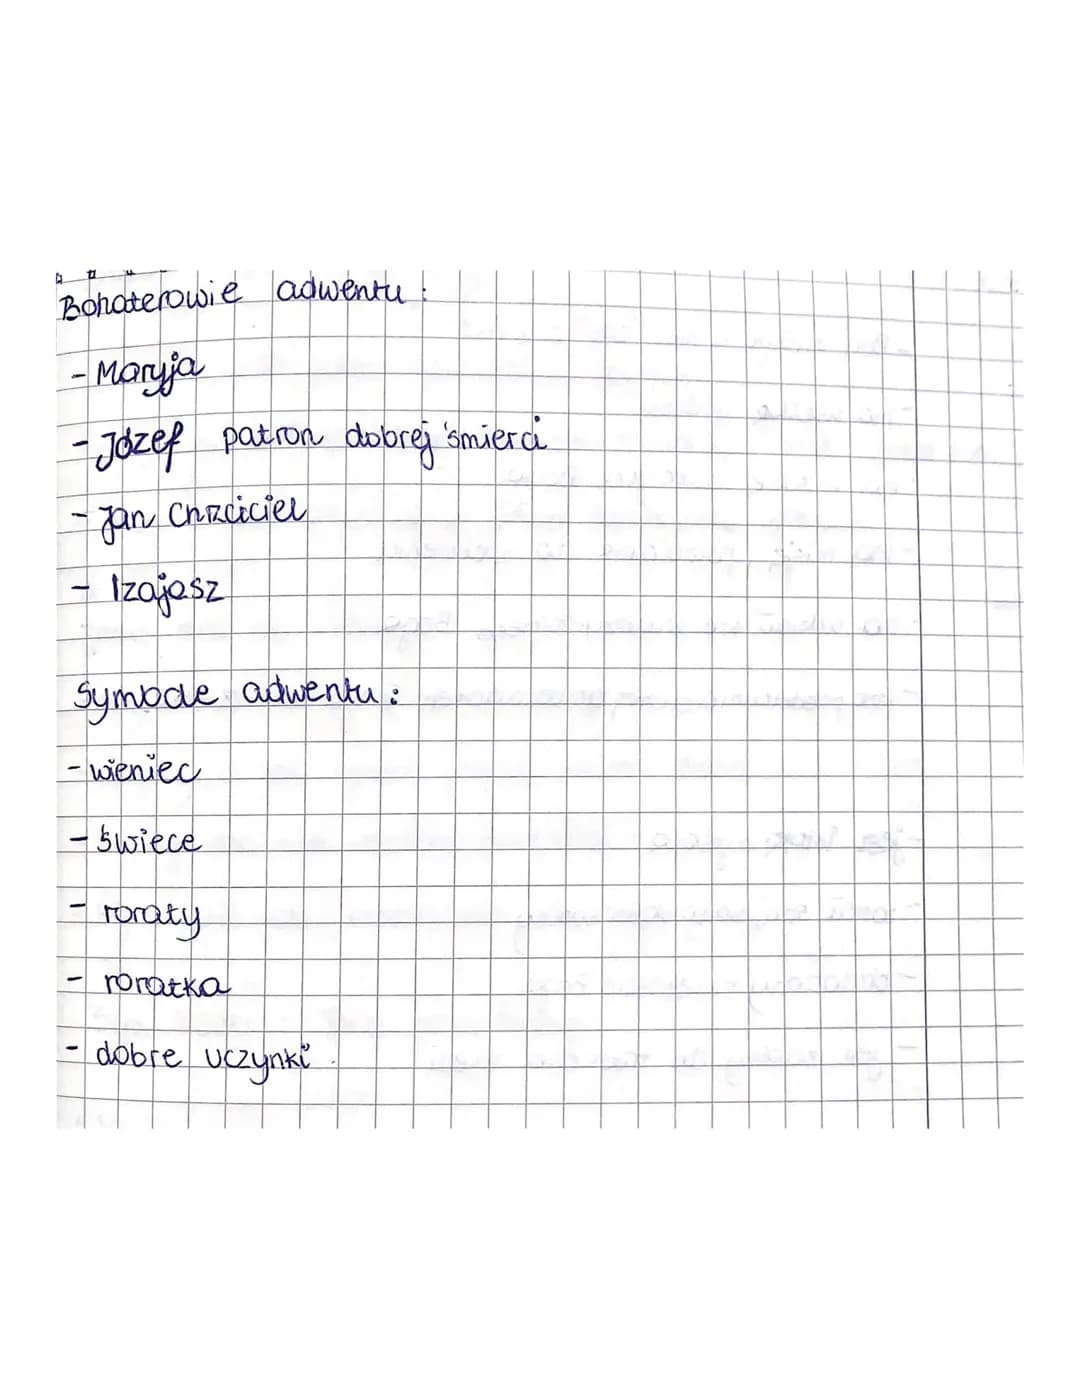 Bohaterowie adwentu:
- Maryja
- Józef patron dobrej śmierci
- Jan Chrzciciel
- Izajasz
Symbole adwentu:
- wieniec
- świece
- roraty
- roratka
- dobre uczynki